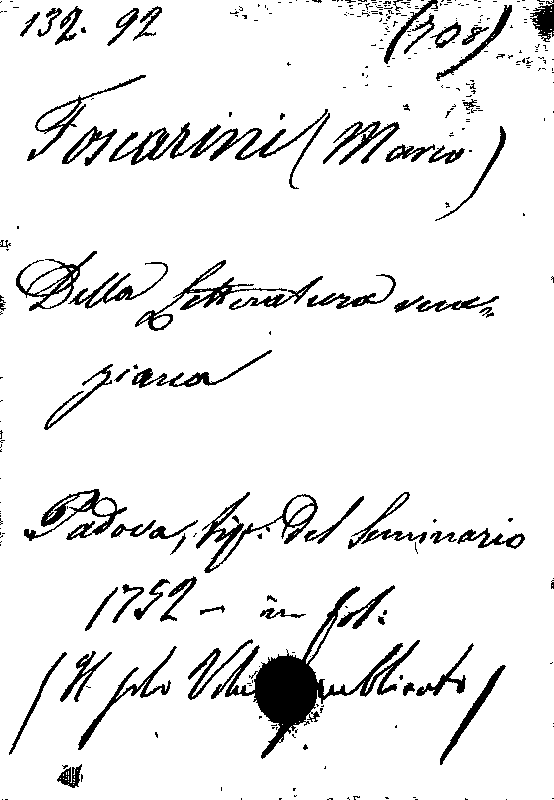 132. 92 (708)
Foscarini (Marco)
Della Letteratura vene=
ziana
Padova, tip. del Seminario
1752 — in fol:
(Il solo Volu pubblicato)